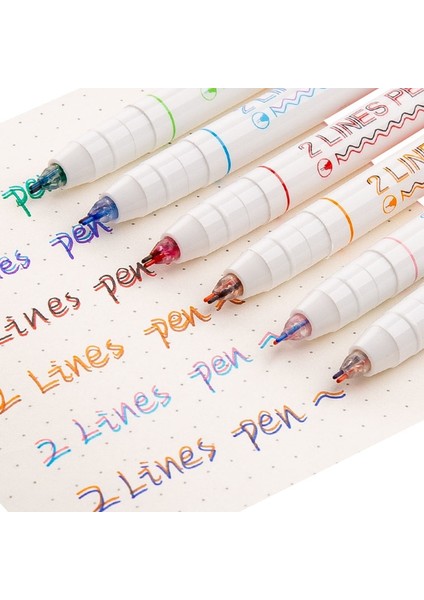 pen
2 LINES PEN
2 LINES PEN
2 LINES PEN
ines pen
Lines pen
2 Lines pen
2 Lines pen
2 Lines pen